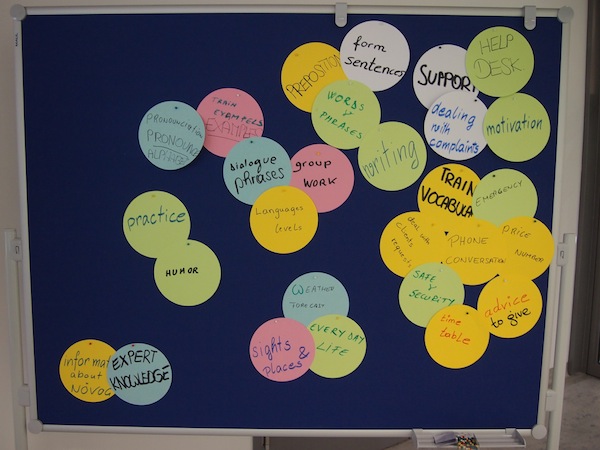 form
sentences
HELP
DESK
PREPOSITION
SUPPORT
WORDS
&
PHRASES
dealing
with
complaints
motivation
TRAIN
EXAMPELS
PRONOUNCIATION
ALPHABET
writing
dialogue
phrases
group
WORK
TRAIN
VOCABULA
EMERGENCY
Languages
levels
practice
deal with
clients
requests
PHONE
CONVERSATION
PRICE
NUMBER
HUMOR
SAFE
&
SECURITY
WEATHER
FORECAST
advice
to give
time
table
EVERY DAY
LIFE
sights
&
places
informat
about
EXPERT
KNOWLEDGE